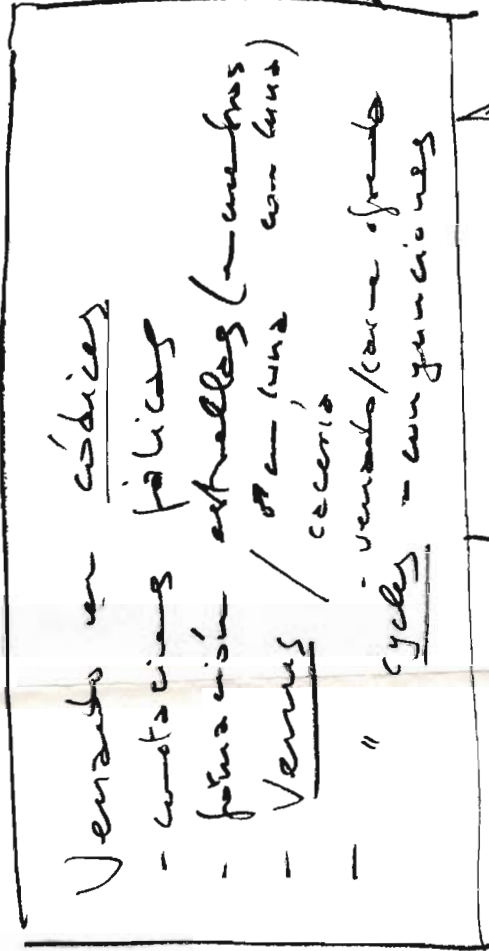 Venado en códices
- connotaciones fálicas
- formación estrellas (- cuentos con luna)
- Venus / ♂ en luna
cacería
- " - venado/carne ofrenda
cycles - conjunciones